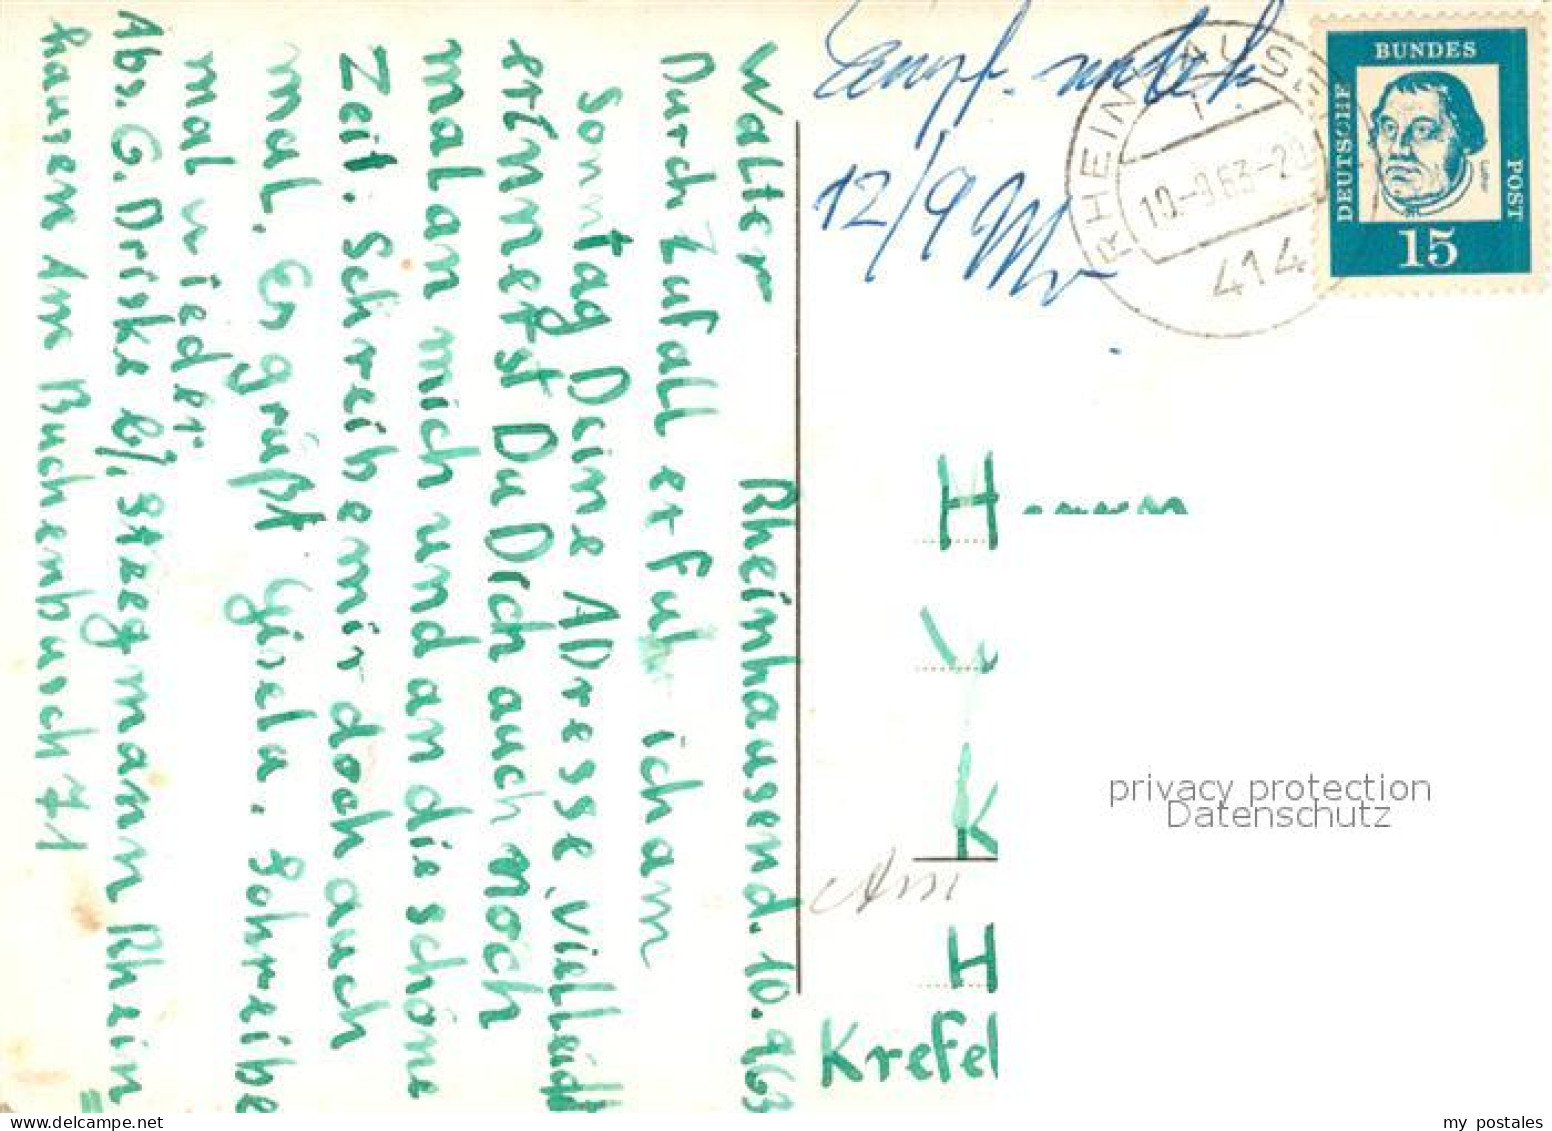 Rheinhausen d. 10.963
Walter
Durch Zufall erfuhr ich am
Sonntag Deine ADresse, Vielleicht
erinnerst Du Dich auch noch
mal an mich und an die schöne
Zeit. Schreibe mir doch auch
mal. Es grüßt Gisela. Schreibe
mal wieder
Abs. G. Driske b/. Stegmann Rhein=
hausen Am Buchenbusch 71
Empf.
12/9
RHEINHAUSEN
10.-9.63-20
414
BUNDES
DEUTSCHE
POST
Luther
15
Herrn
K
Am
H
Krefel
privacy protection
Datenschutz
my postales